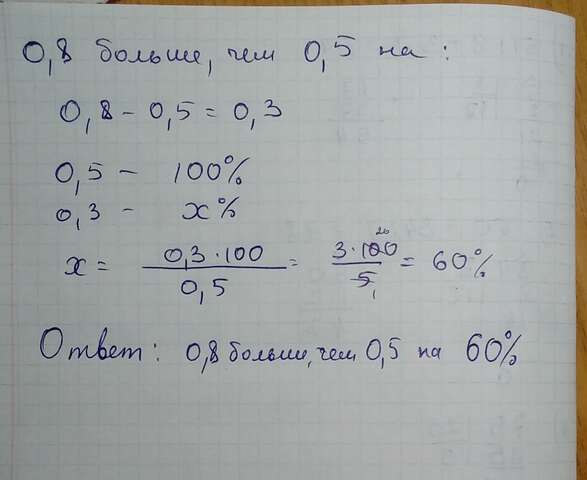 0,8 больше, чем 0,5 на:
0,8 - 0,5 = 0,3
0,5 - 100%
0,3 - x%
x = 0,3 · 100 / 0,5 = 3 · 100 20 / 5 1 = 60%
Ответ: 0,8 больше, чем 0,5 на 60%